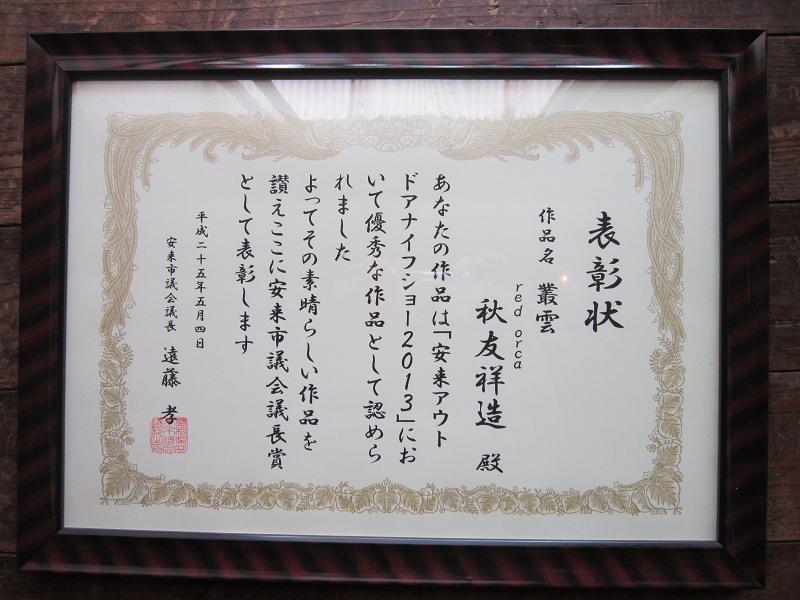 表彰状
作品名 叢雲
red orca
秋友祥造 殿
あなたの作品は「安来アウト
ドアナイフショー2013」にお
いて優秀な作品として認めら
れました
よってその素晴らしい作品を
讃えここに安来市議会議長賞
として表彰します
平成二十五年五月四日
安来市議会議長 遠藤 孝